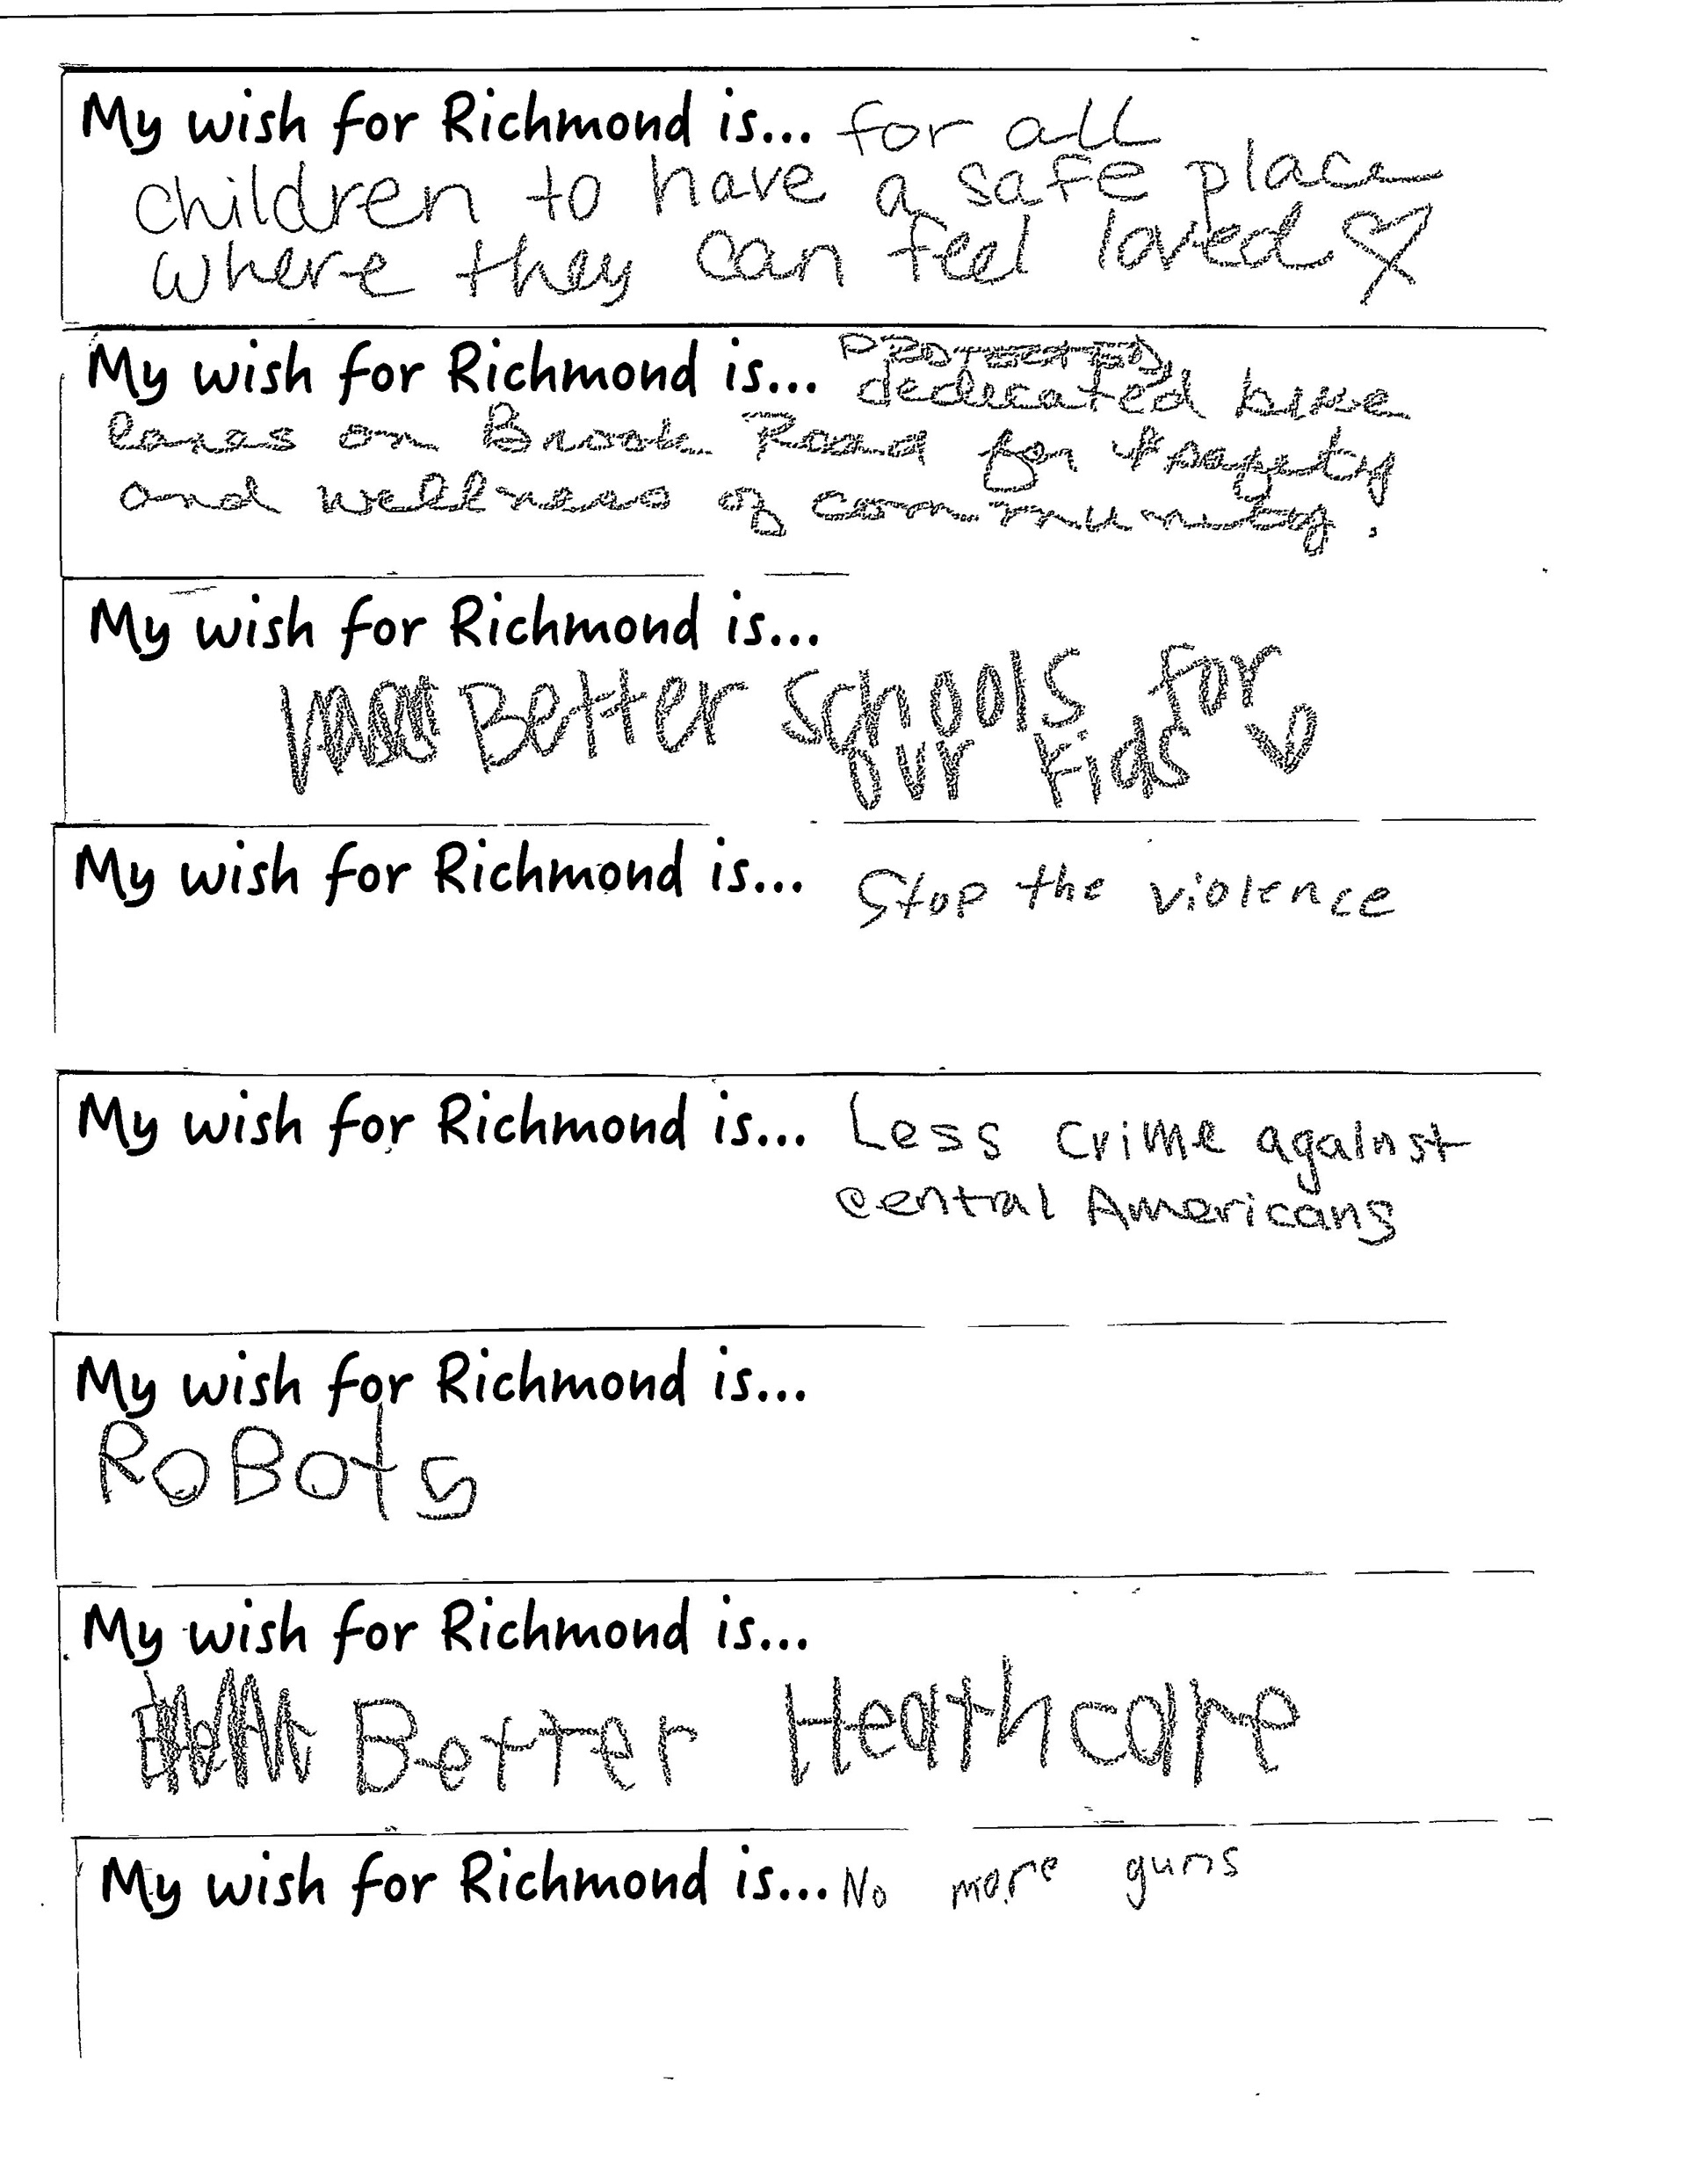 My wish for Richmond is... for all
children to have a safe place
where they can feel loved
My wish for Richmond is... PROTECTED,
dedicated bike
lanes on Brook Road for safety
and wellness of community!
My wish for Richmond is...
Better schools for
our kids
My wish for Richmond is... Stop the violence
My wish for Richmond is... Less crime against
central Americans
My wish for Richmond is...
RoBots
My wish for Richmond is...
Better Heathcare
My wish for Richmond is... No more guns